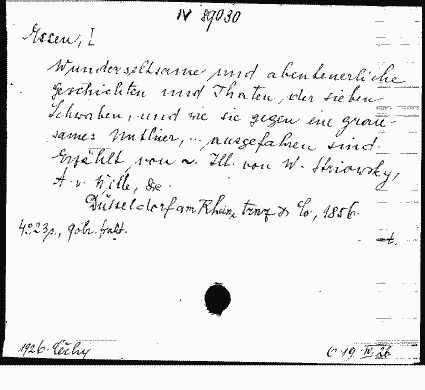 IV 89030
Essen, L
Wunderseltsame und abenteuerliche
Geschichten und Thaten, der sieben
Schwaben, und wie sie gegen ein grau-
sames ... ausgefahren sind.
Erzählt von u. Ill. von W. Striowsky,
A. v. Wille, &c.
Düsseldorf am Rhein, Arnz & Co, 1856.
4°, 23 p., gebr.
1926. Čechy
C 19 IV 26